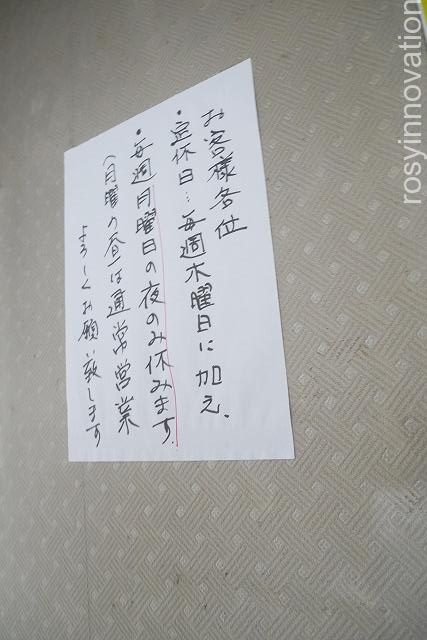 お客様各位
・定休日…毎週木曜日に加え、
・毎週月曜日の夜のみ休みます。
(月曜の昼は通常営業
よろしくお願い致します
rosyinnovation